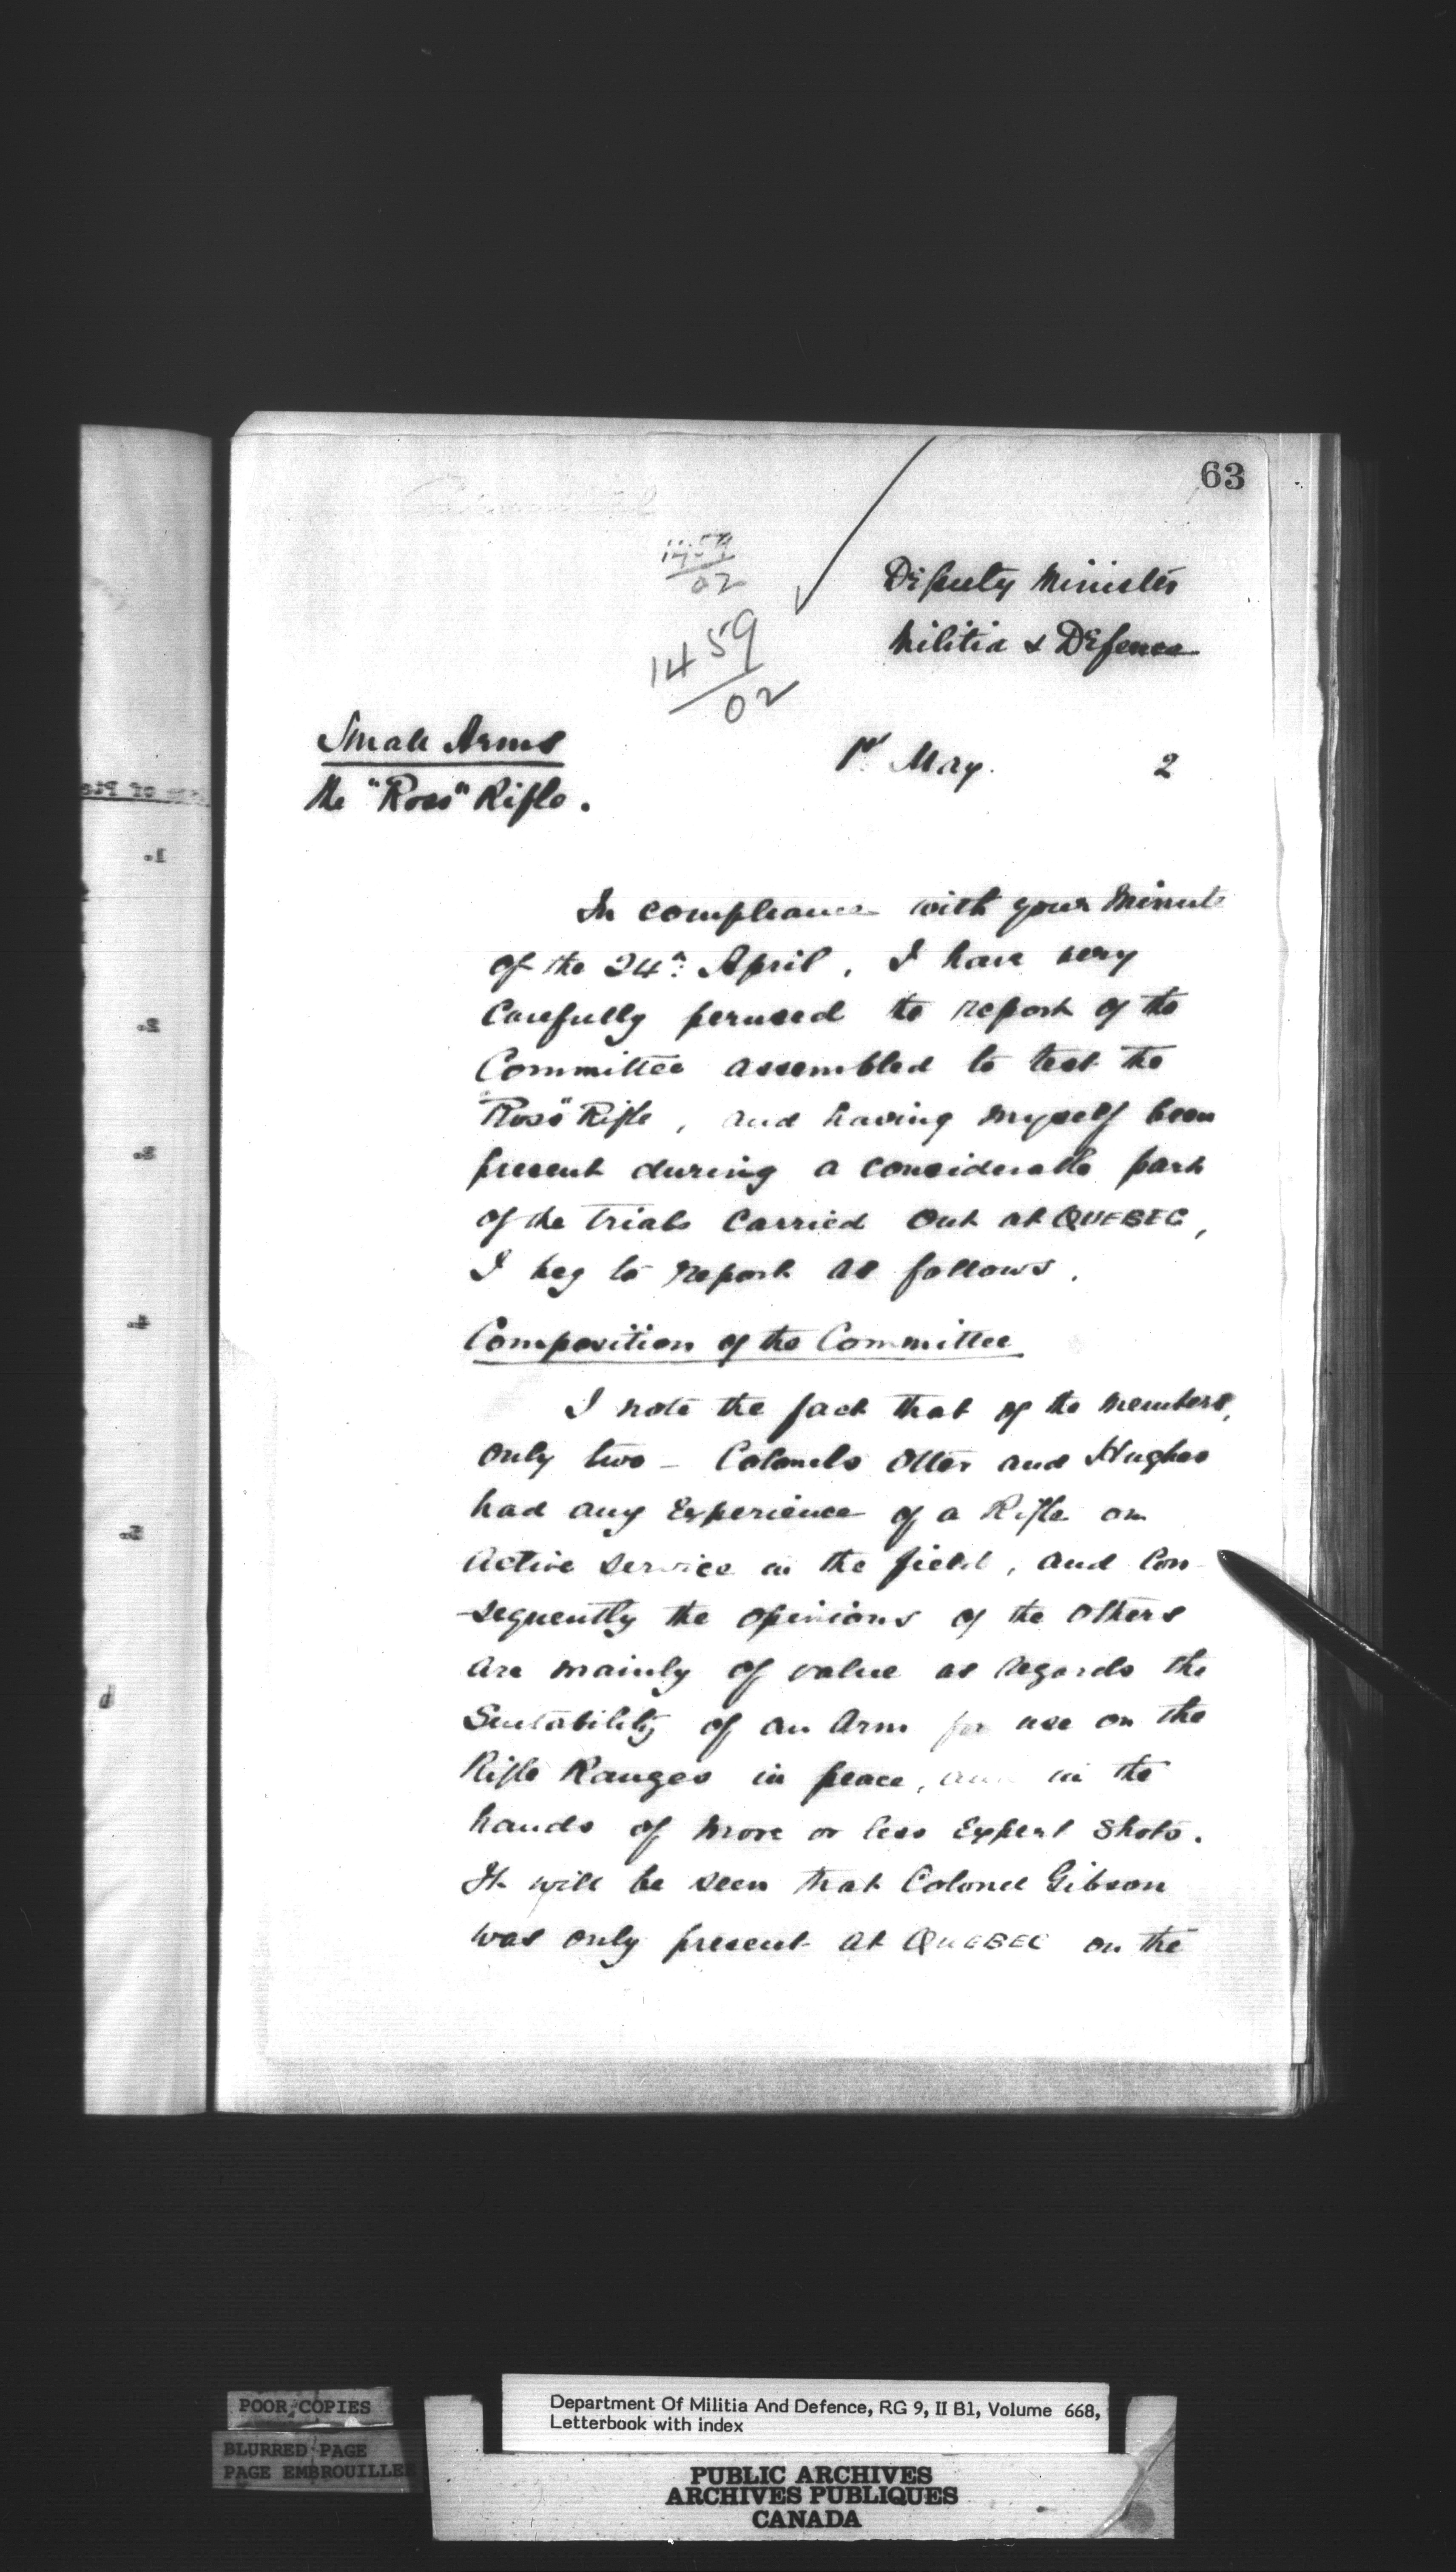 63
1459
02
1459
02
Deputy Minister
Militia & Defence
Small Arms
the "Ross" Rifle.
1st May. 2
In compliance with your Minute
of the 24th April, I have very
Carefully perused the report of the
Committee assembled to test the
"Ross" Rifle, and having myself been
present during a considerable part
of the trials carried out at QUEBEC,
I beg to report as follows.
Composition of the Committee
I note the fact that of the members,
only two - Colonels Otter and Hughes
had any Experience of a Rifle on
Active service in the field, and Con-
-sequently the opinions of the others
are mainly of value as regards the
Suitability of an Arm for use on the
Rifle Ranges in peace, and in the
hands of more or less Expert Shots.
It will be seen that Colonel Gibson
was only present at QUEBEC on the
1.
2.
3.
4.
5.
POOR COPIES
BLURRED PAGE
PAGE EMBROUILLEE
Department Of Militia And Defence, RG 9, II B1, Volume 668,
Letterbook with index
PUBLIC ARCHIVES
ARCHIVES PUBLIQUES
CANADA